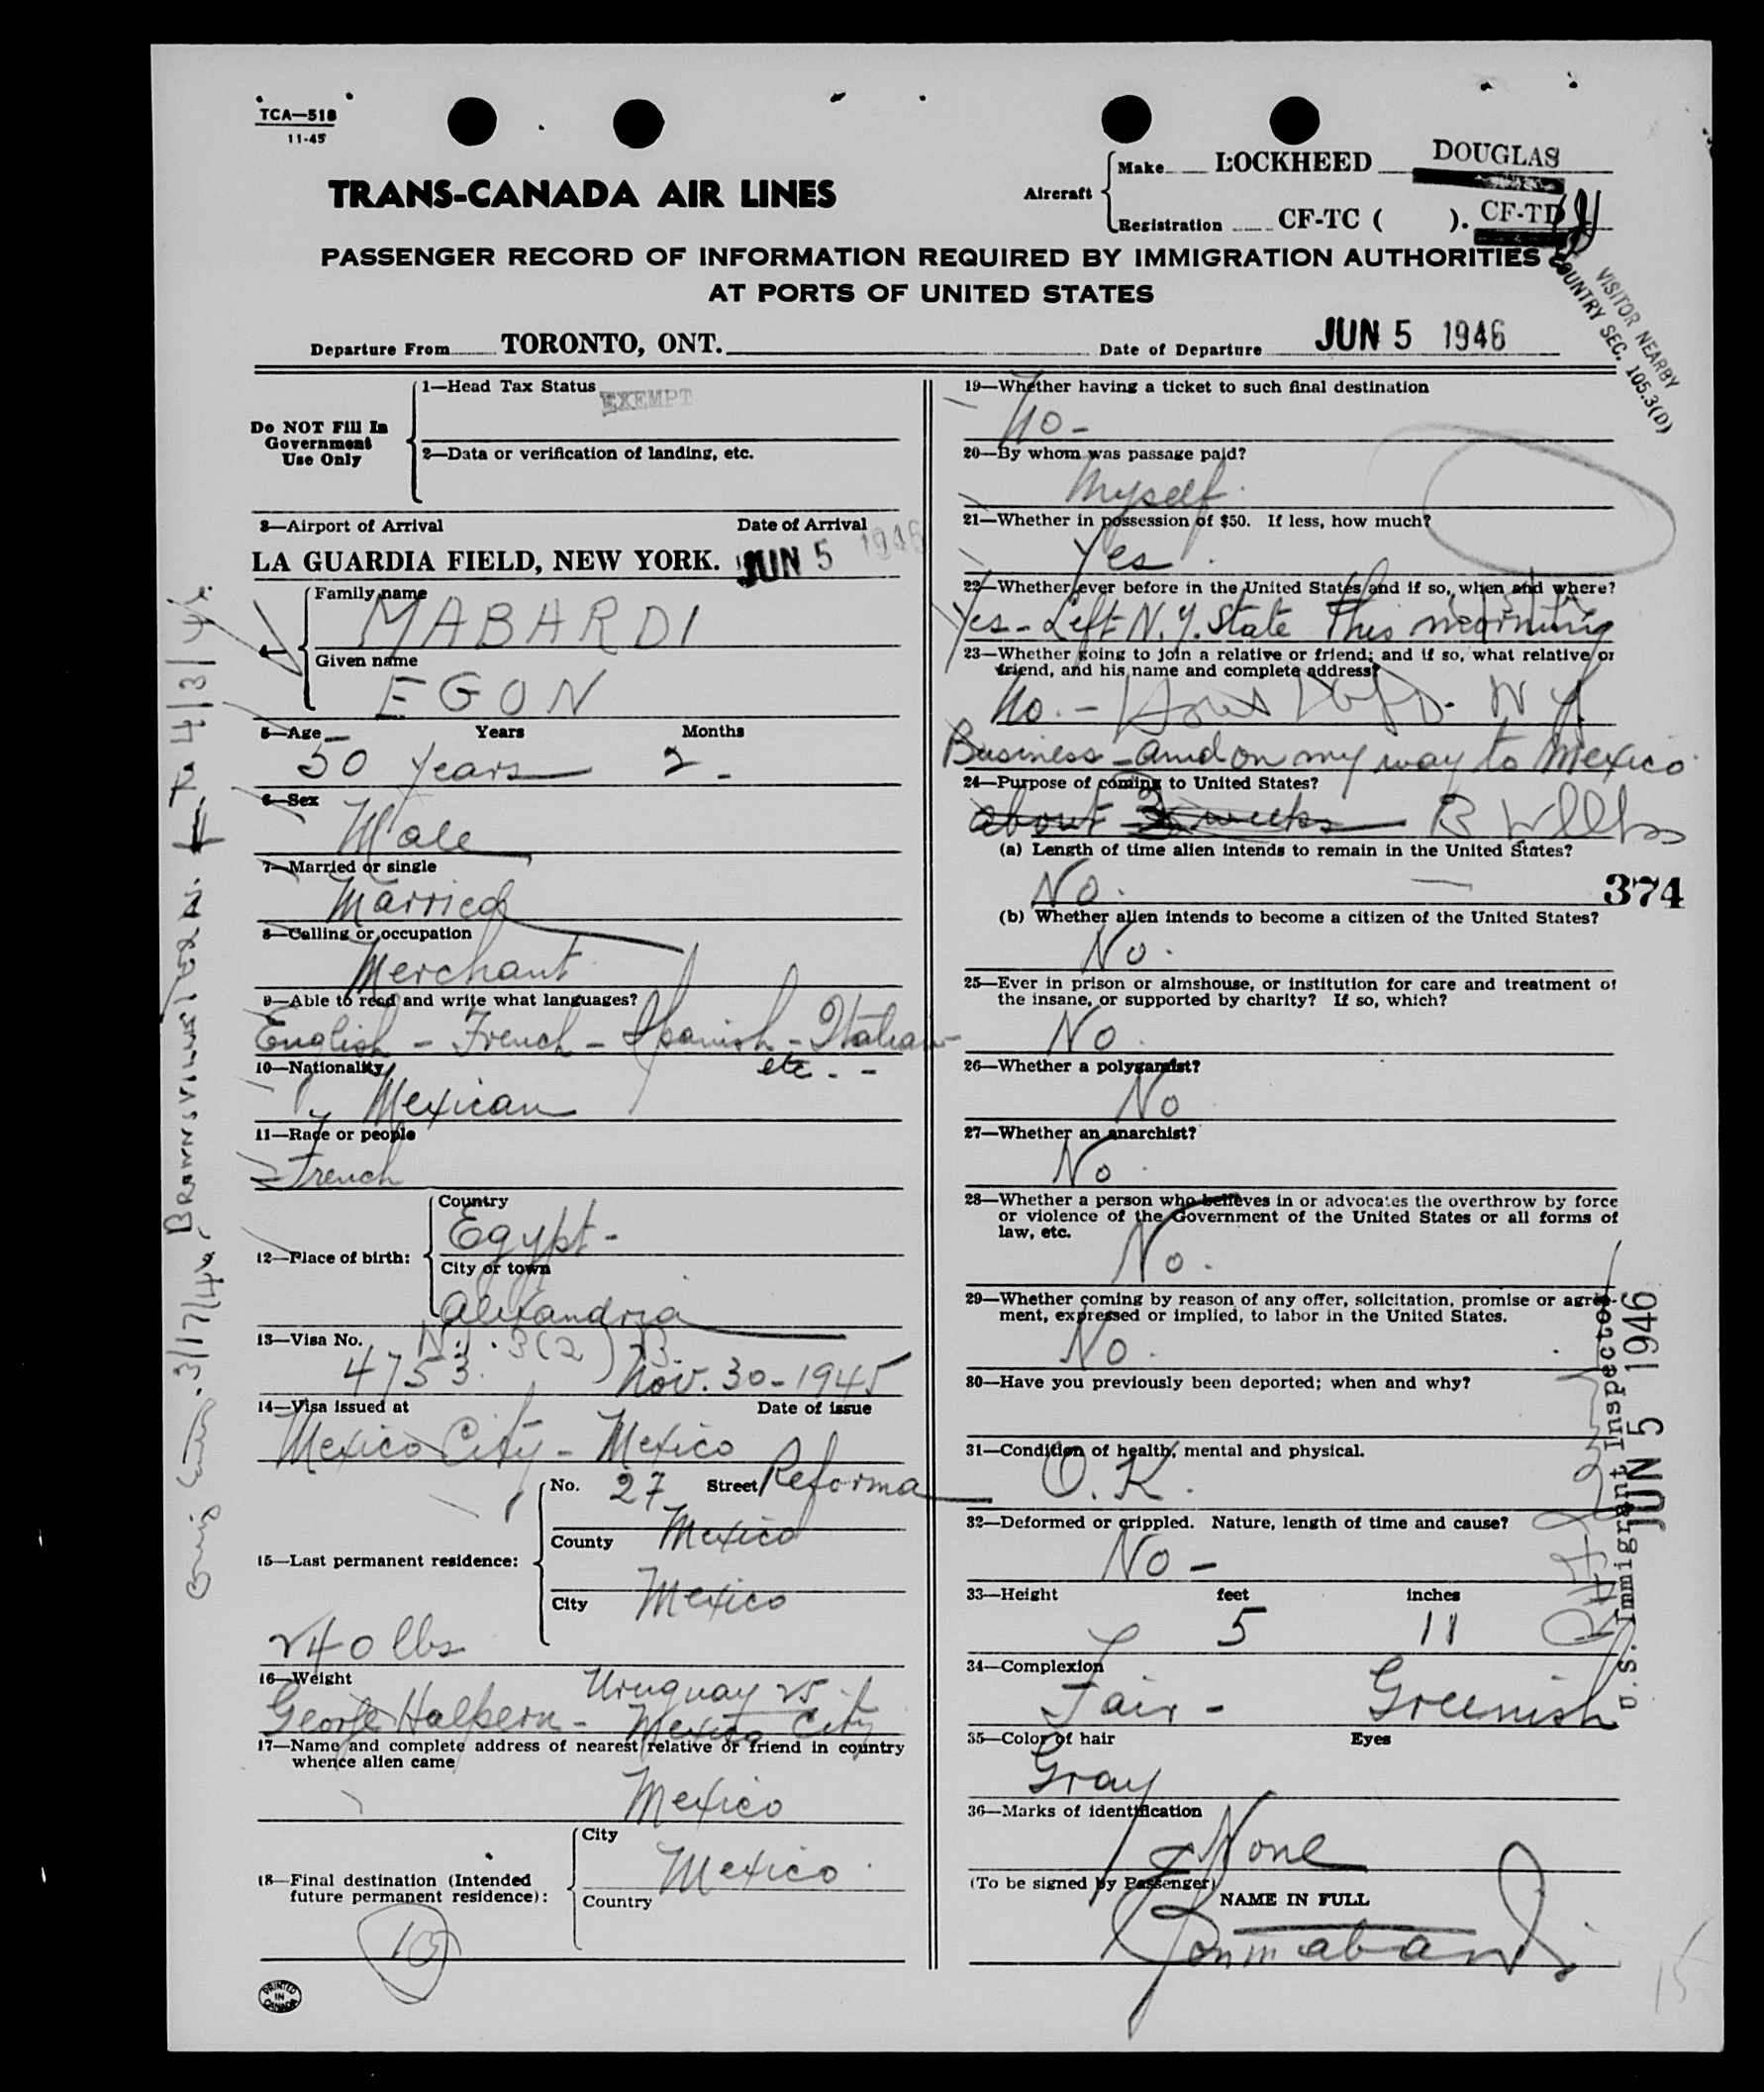 TCA—518
11-45
TRANS-CANADA AIR LINES
Aircraft
Make LOCKHEED DOUGLAS
Registration CF-TC ( ). CF-TD
PASSENGER RECORD OF INFORMATION REQUIRED BY IMMIGRATION AUTHORITIES
AT PORTS OF UNITED STATES
VISITOR NEARBY
COUNTRY SEC. 105.3(D)
Departure From TORONTO, ONT. Date of Departure JUN 5 1946
Do NOT Fill In
Government
Use Only
1—Head Tax Status
EXEMPT
2—Data or verification of landing, etc.
3—Airport of Arrival Date of Arrival
LA GUARDIA FIELD, NEW YORK. JUN 5 1946
Family name
MABARDI
Given name
EGON
5—Age Years Months
50 years 2 -
6—Sex
Male
7—Married or single
Married
8—Calling or occupation
Merchant
9—Able to read and write what languages?
English - French - Spanish - Italian
etc - -
10—Nationality
Mexican
11—Race or people
French
12—Place of birth:
Country
Egypt -
City or town
Alexandria
13—Visa No.
3(2)
4753 Nov. 30-1945
14—Visa issued at Date of issue
Mexico City - Mexico
15—Last permanent residence:
No. 27 Street Reforma
County Mexico
City Mexico
240 lbs
16—Weight
Uruguay 25
George Halpern - Mexico City
17—Name and complete address of nearest relative or friend in country
whence alien came
Mexico
18—Final destination (Intended
future permanent residence):
City
Mexico
Country
10
PRINTED
IN
CANADA
19—Whether having a ticket to such final destination
No -
20—By whom was passage paid?
Myself.
21—Whether in possession of $50. If less, how much?
Yes.
22—Whether ever before in the United States and if so, when and where?
Yes - Left N.Y. State this morning
23—Whether going to join a relative or friend; and if so, what relative or
friend, and his name and complete address?
No. - N Y
Business - and on my way to Mexico
24—Purpose of coming to United States?
about 3 weeks
(a) Length of time alien intends to remain in the United States?
No.
374
(b) Whether alien intends to become a citizen of the United States?
No.
25—Ever in prison or almshouse, or institution for care and treatment of
the insane, or supported by charity? If so, which?
No.
26—Whether a polygamist?
No
27—Whether an anarchist?
No.
28—Whether a person who believes in or advocates the overthrow by force
or violence of the Government of the United States or all forms of
law, etc.
No.
29—Whether coming by reason of any offer, solicitation, promise or agree-
ment, expressed or implied, to labor in the United States.
No.
30—Have you previously been deported; when and why?
31—Condition of health, mental and physical.
O.K.
32—Deformed or crippled. Nature, length of time and cause?
No -
33—Height feet inches
5 11
34—Complexion
Fair - Greenish
35—Color of hair Eyes
Gray
36—Marks of identification
None
(To be signed by Passenger)
NAME IN FULL
U.S. Immigrant Inspector
JUN 5 1946
15